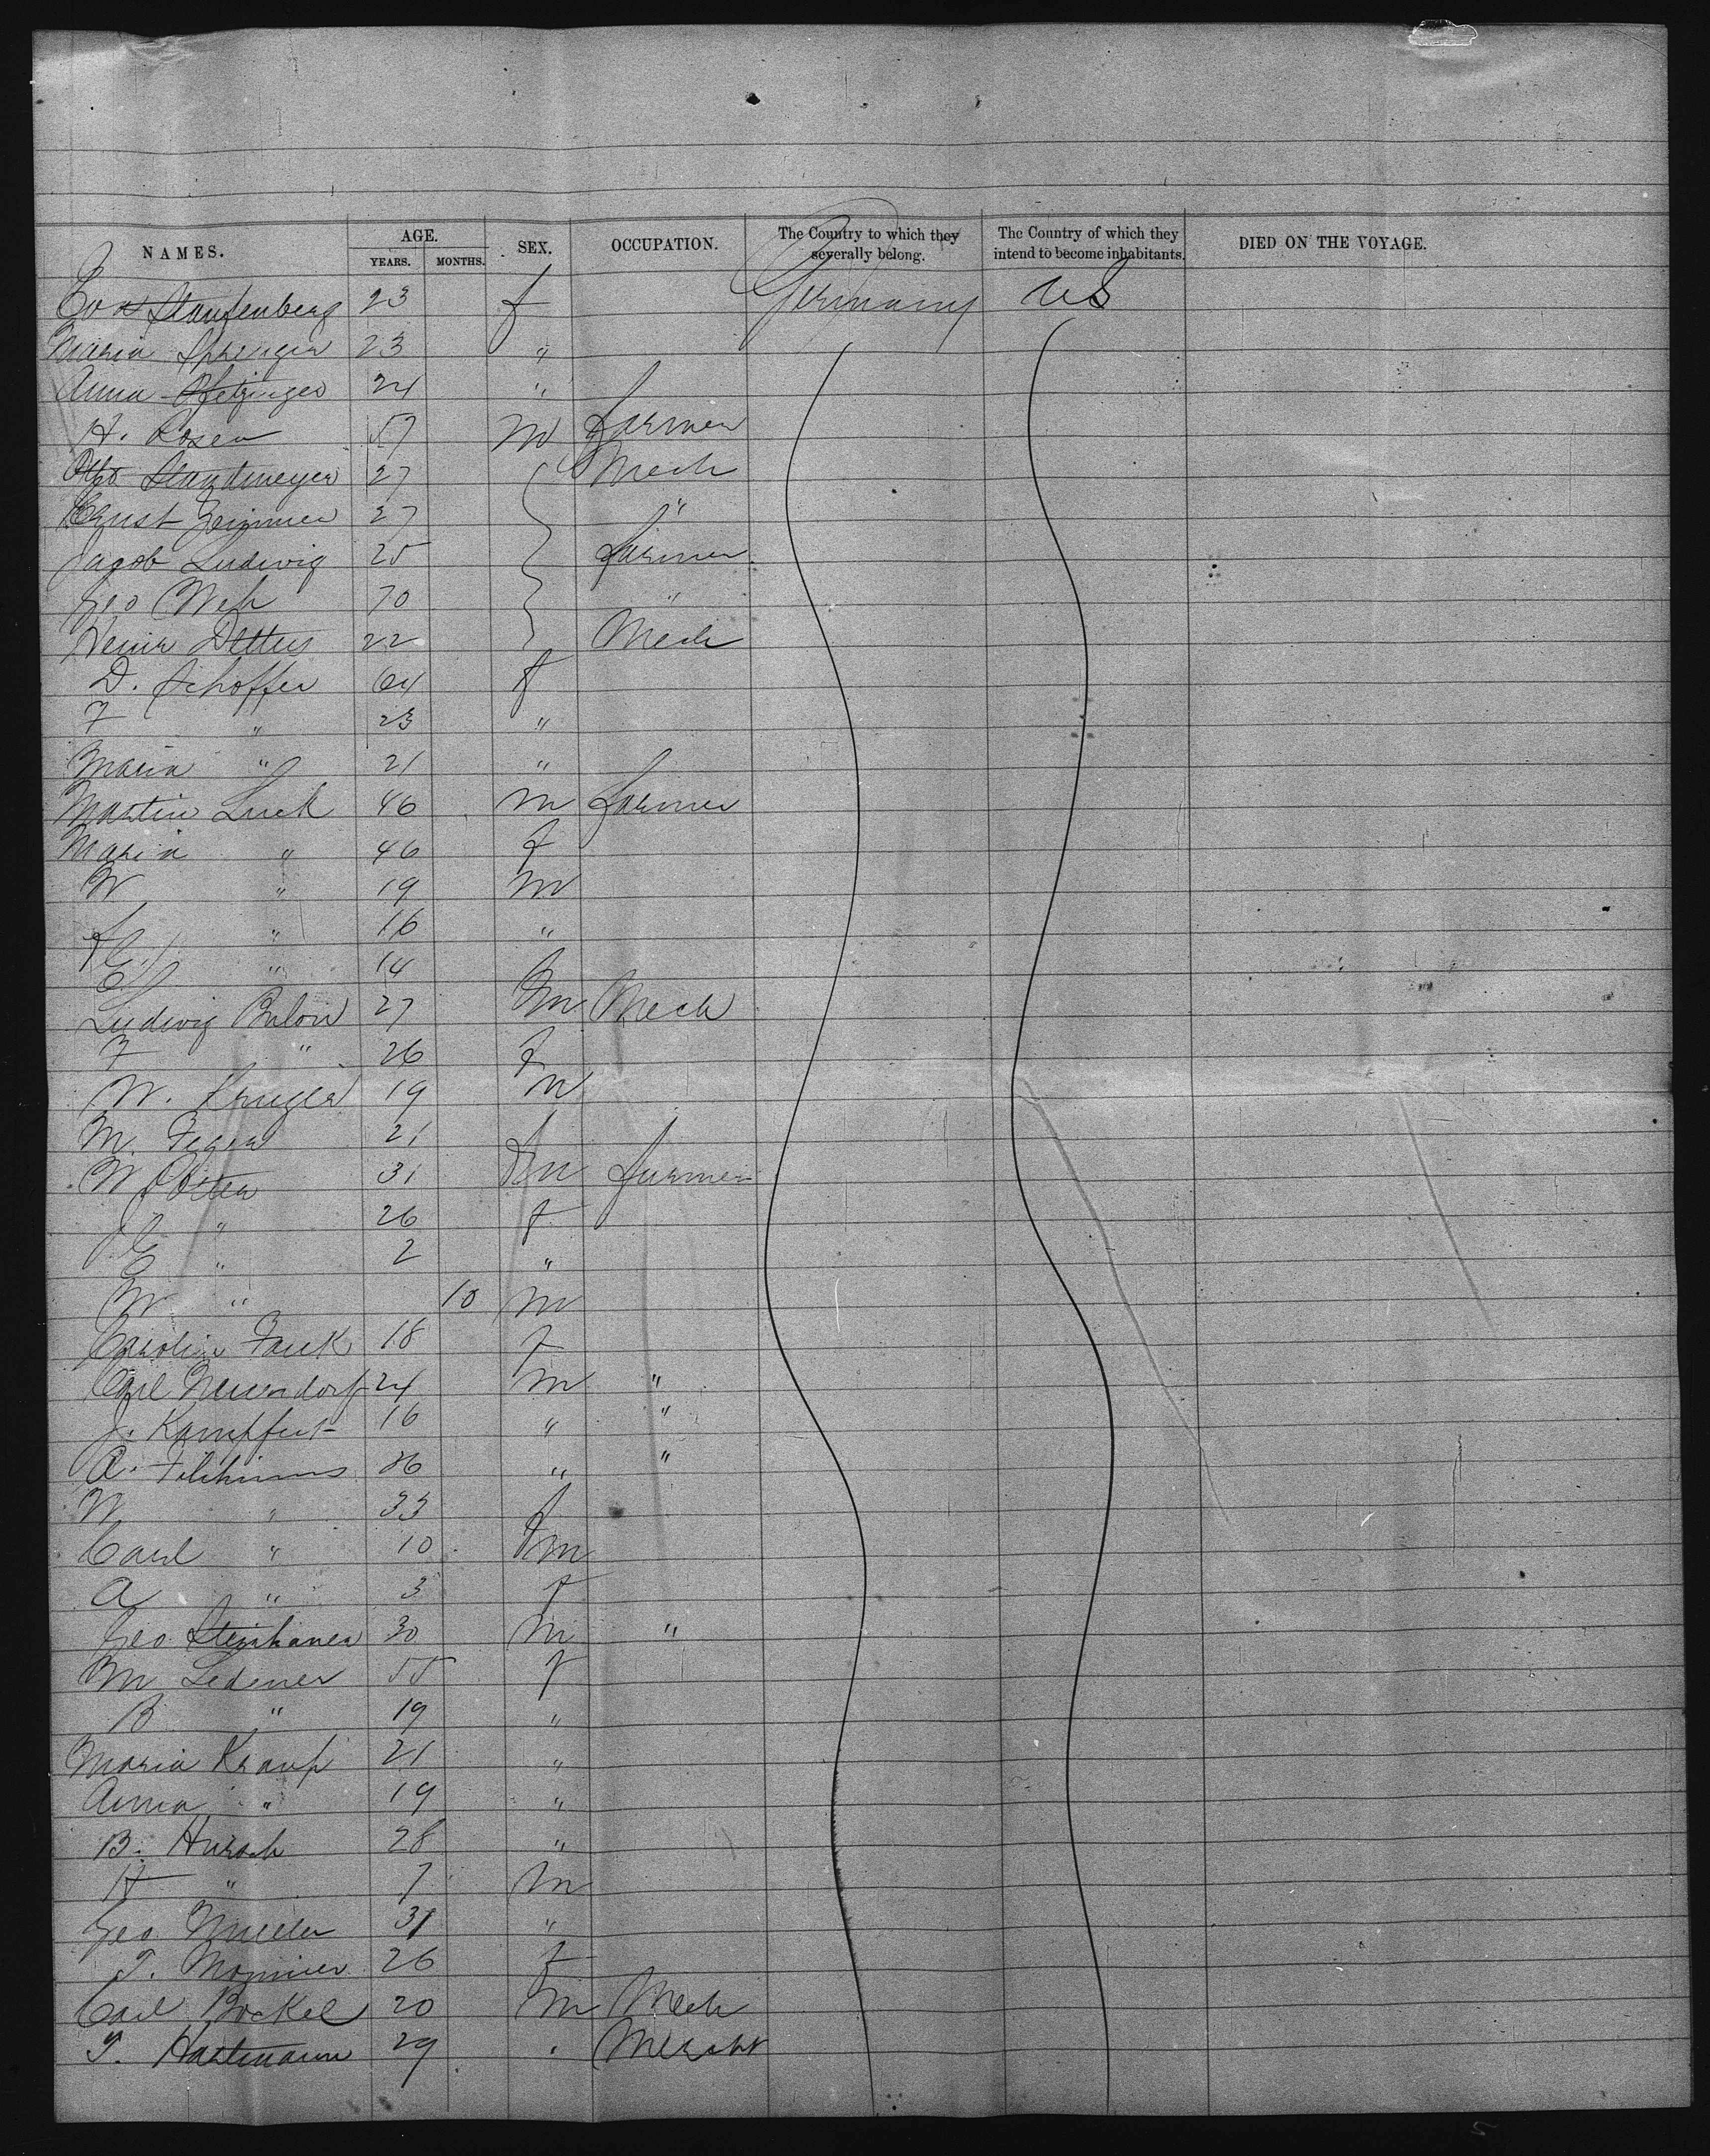 NAMES. AGE. SEX. OCCUPATION. The Country to which they severally belong. The Country of which they intend to become inhabitants. DIED ON THE VOYAGE.
YEARS. MONTHS.
Eva Staufenberg 23 f Germany US
Maria Sprenger 23 "
Anna 24 "
H. Rosen 57 m Farmer
Otto Standmeyer 27 Mech
Ernst Zimmer 27 "
Jacob Ludwig 25 Farmer
Geo Weh 70 "
Heinr Detters 22 Mech
D. Schoffer 64 f
F " 23 "
Maria " 21 "
Martin Luck 46 m Farmer
Maria " 46 f
W " 19 m
" 16 "
" 14 f
Ludwig Bulow 27 m Mech
F " 26 f
W. Kruger 19 m
M. 21 f
W 31 m Farmer
" 26 f
E " 2 "
W " 10 m
Carolin Fauk 18 f
Carl Neuendorf 24 m "
J. Kampfert 16 " "
A. 36 " "
W " 33 f
Carl " 10 m
A " 3 f
Geo. 30 m "
M Lederer 55 f
B " 19 "
Maria Kraup 21 "
Anna " 19 "
B. Hirsch 28 "
H " 7 m
Geo. Muller 31 "
T. Monnier 26 f
Carl Bockel 20 m Mech
T. Hartmann 29 " Mercht